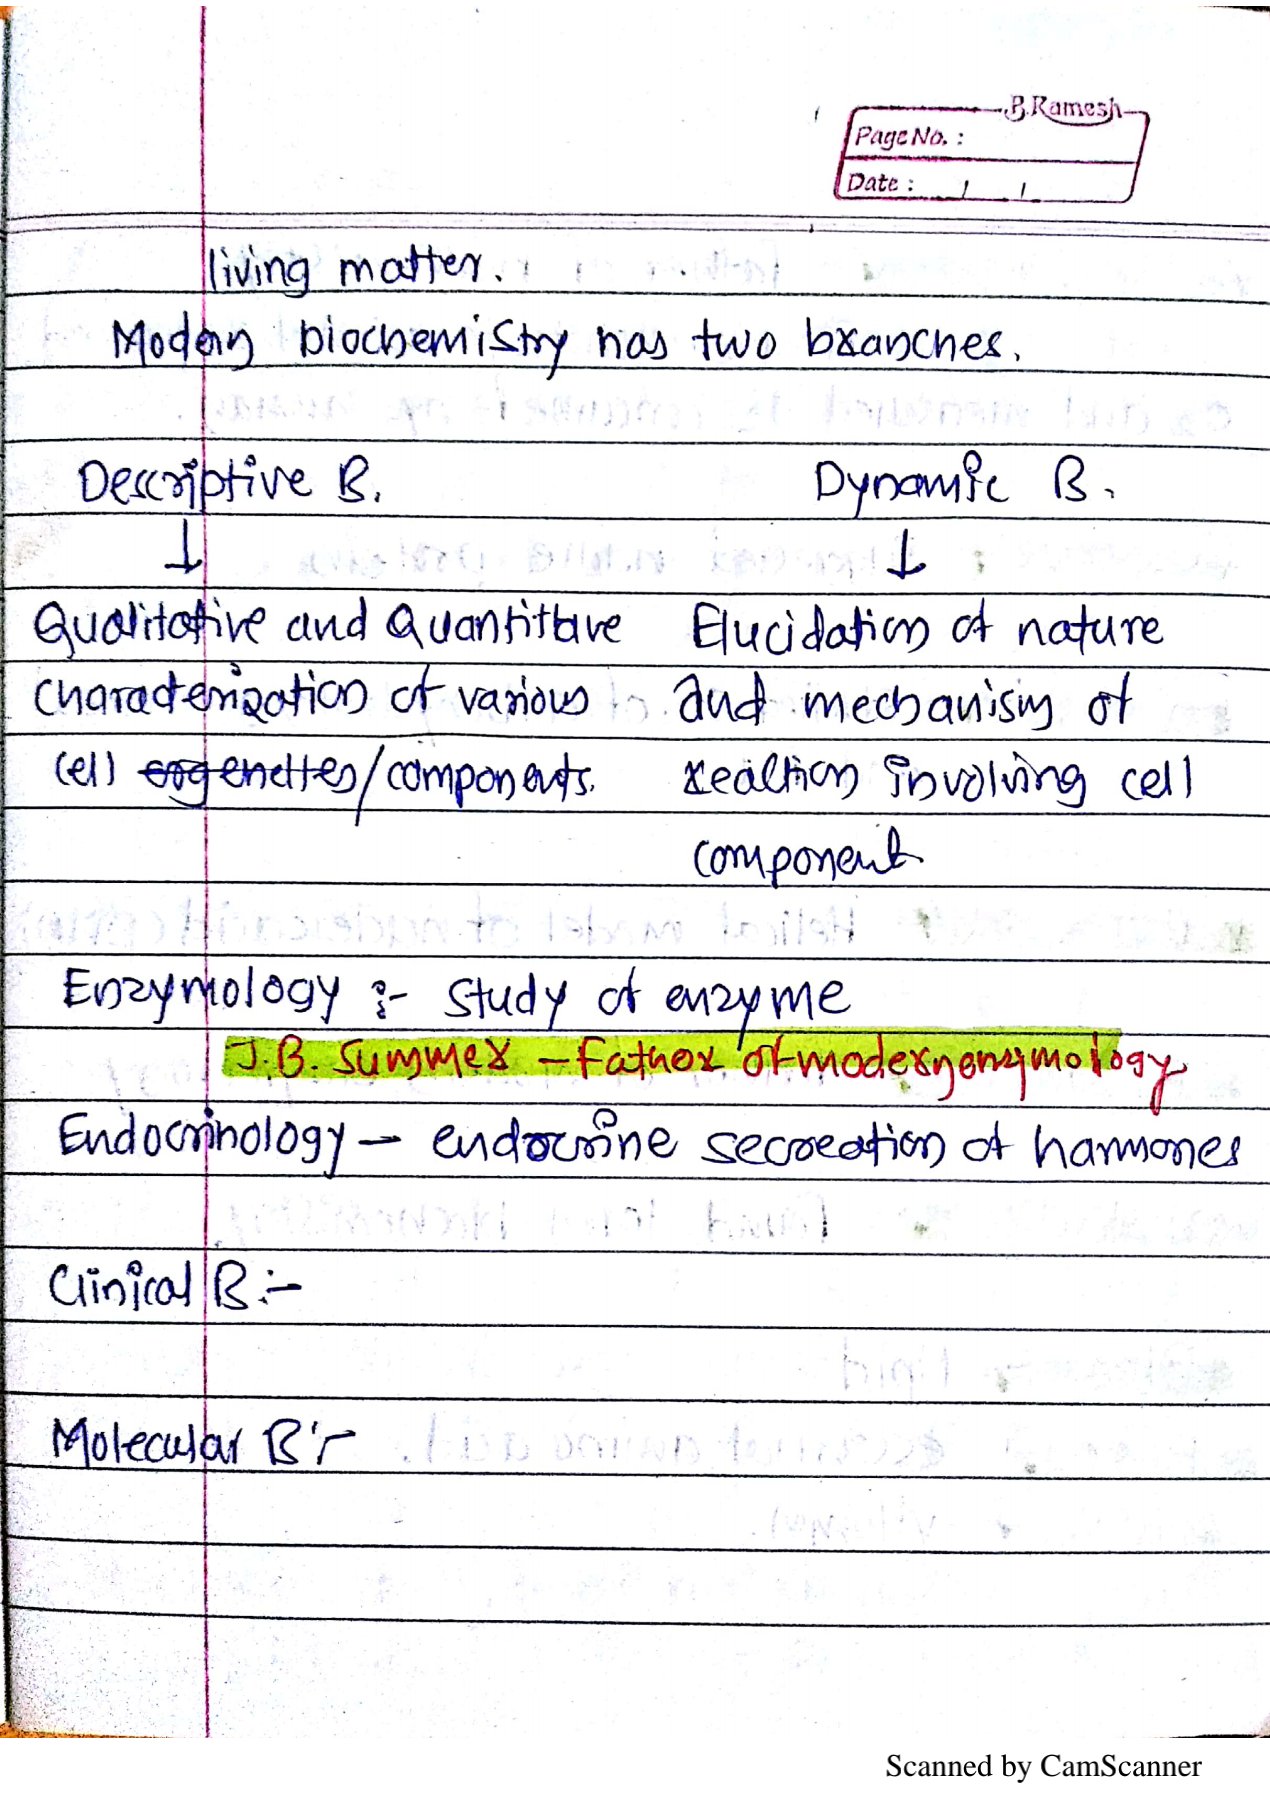 B.Ramesh
Page No. :
Date : / /
living matter.
Modern biochemistry has two branches.
Descriptive B. Dynamic B.
↓ ↓
Qualitative and Quantittave Elucidation of nature
characterization of various and mechanism of
cell / components. reaction involving cell
component
Enzymology :- study of enzyme
J.B. Summer - Father of modern enzymology
Endocrinology - endocrine secreation of harmones
Clinical B :-
Molecular B :-
Scanned by CamScanner